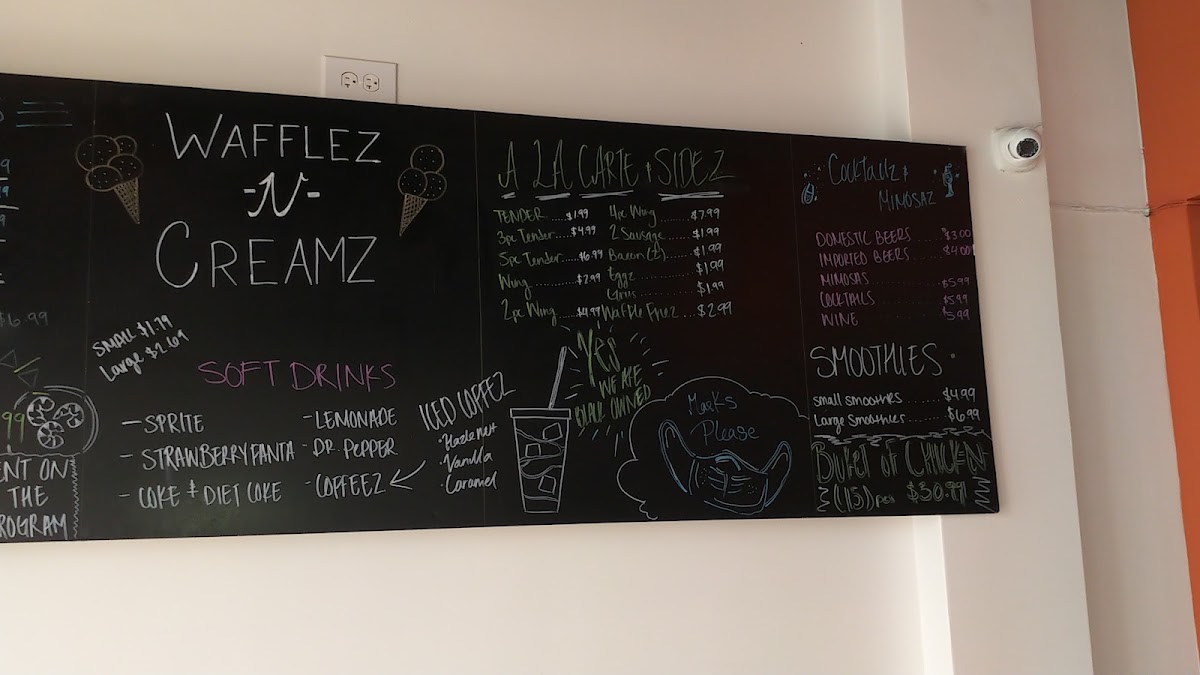 $6.99
99
ENT ON
THE
ROGRAM
WAFFLEZ
-N-
CREAMZ
SMALL $1.79
Large $2.69
SOFT DRINKS
- SPRITE
- STRAWBERRY FANTA
- COKE + DIET COKE
- LEMONADE
- DR. PEPPER
- COFFEEZ
ICED COFFEZ
• Hazelnett
• Vanilla
• Caramel
A LA CARTE + SIDEZ
TENDER ..... $1.99
3pc Tender ..... $4.99
5pc Tender ..... $6.99
Wing ..... $2.99
2pc Wing ..... $4.99
4pc Wing ..... $7.99
2 Sausage ..... $1.99
Bacon (2) ..... $1.99
Eggz ..... $1.99
Grits ..... $1.99
Waffle Friez ..... $2.99
Yes
WE ARE
BLACK OWNED
Masks
Please
Cocktailz +
MIMOSAZ
DOMESTIC BEERS .... $3.00
IMPORTED BEERS .... $4.00
MIMOSAS ..... $5.99
COCKTAILS ..... $5.99
WINE ..... $5.99
SMOOTHIES
small smoothies ..... $4.99
Large Smoothies ..... $6.99
BUKET OF CHICKEN
$30.99